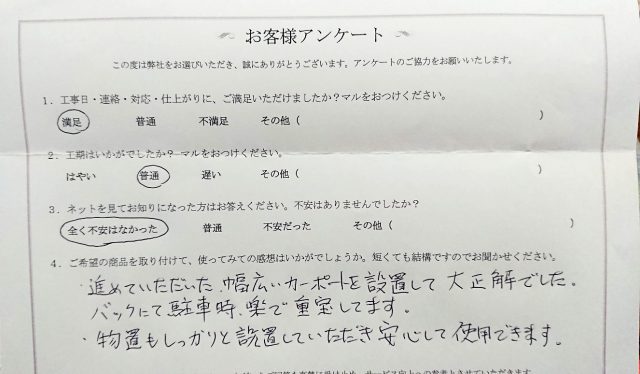 お客様アンケート
この度は弊社をお選びいただき、誠にありがとうございます。アンケートのご協力をお願いいたします。
1．工事日・連絡・対応・仕上がりに、ご満足いただけましたか？マルをおつけください。
満足　普通　不満足　その他（　）
2．工期はいかがでしたか？マルをおつけください。
はやい　普通　遅い　その他（　）
3．ネットを見てお知りになった方はお答えください。不安はありませんでしたか？
全く不安はなかった　普通　不安だった　その他（　）
4．ご希望の商品を取り付けて、使ってみての感想はいかがでしょうか。短くても結構ですのでお聞かせください。
・進めていただいた、幅広いカーポートを設置して大正解でした。
バックにて駐車時、楽で重宝してます。
・物置もしっかりと設置していただき安心して使用できます。